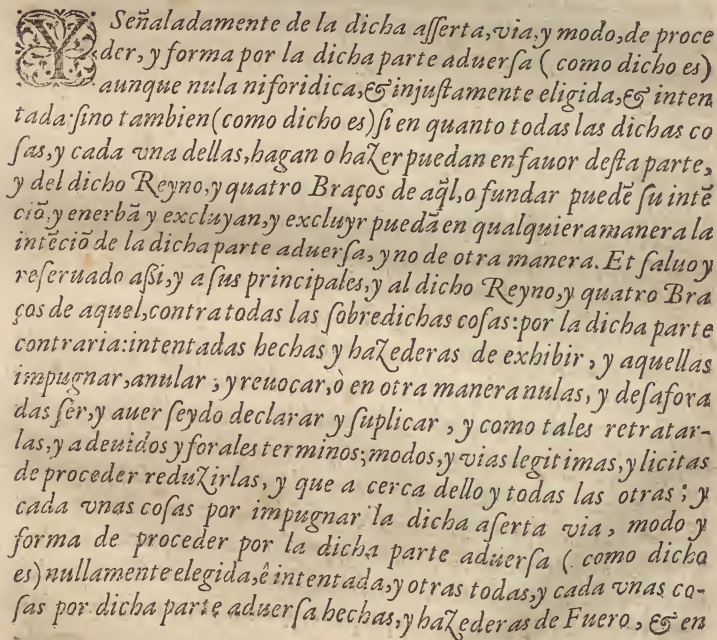 Y Señaladamente de la dicha asserta, via, y modo, de proce
der, y forma por la dicha parte aduersa ( como dicho es)
aunque nula ni foridica, & injustamente eligida, & inten
tada: sino tambien (como dicho es) si en quanto todas las dichas co
sas, y cada vna dellas, hagan o hazer puedan en fauor desta parte,
y del dicho Reyno, y quatro Braços de aq̃l, o fundar puedē su intē
ciō, y enerbā y excluyan, y excluyr puedā en qualquiera manera la
intēciō de la dicha parte aduersa, y no de otra manera. Et saluo y
reseruado assi, y a sus principales, y al dicho Reyno, y quatro Bra
ços de aquel, contra todas las sobredichas cosas: por la dicha parte
contraria: intentadas hechas y hazederas de exhibir, y aquellas
impugnar, anular ; y reuocar, ò en otra manera nulas, y desafora
das ser, y auer seydo declarar y suplicar , y como tales retratar-
las, y a deuidos y forales terminos; modos, y vias legitimas, y licitas
de proceder reduzirlas, y que a cerca dello y todas las otras ; y
cada vnas cosas por impugnar la dicha aserta via , modo y
forma de proceder por la dicha parte aduersa ( como dicho
es) nullamente elegida, ê intentada, y otras todas, y cada vnas co-
sas por dicha parte aduersa hechas, y hazederas de Fuero, & en